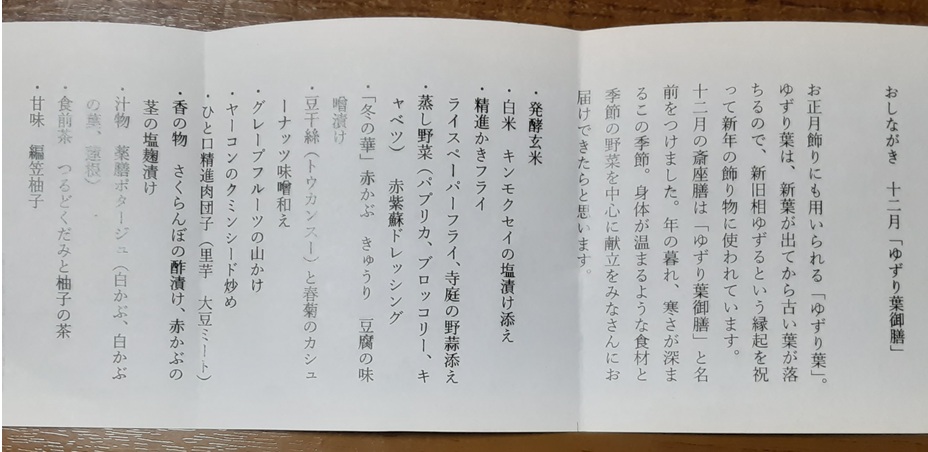 おしながき　十二月「ゆずり葉御膳」
お正月飾りにも用いられる「ゆずり葉」。
ゆずり葉は、新葉が出てから古い葉が落
ちるので、新旧相ゆずるという縁起を祝
って新年の飾り物に使われています。
十二月の斎座膳は「ゆずり葉御膳」と名
前をつけました。年の暮れ、寒さが深ま
るこの季節。身体が温まるような食材と
季節の野菜を中心に献立をみなさんにお
届けできたらと思います。
・発酵玄米
・白米　キンモクセイの塩漬け添え
・精進かきフライ
ライスペーパーフライ、寺庭の野蒜添え
・蒸し野菜（パプリカ、ブロッコリー、キ
ャベツ）　赤紫蘇ドレッシング
・「冬の華」赤かぶ　きゅうり　豆腐の味
噌漬け
・豆干絲（トウカンスー）と春菊のカシュ
ーナッツ味噌和え
・グレープフルーツの山かけ
・ヤーコンのクミンシード炒め
・ひと口精進肉団子（里芋　大豆ミート）
・香の物　さくらんぼの酢漬け、赤かぶの
茎の塩麹漬け
・汁物　薬膳ポタージュ（白かぶ、白かぶ
の葉、蓮根）
・食前茶　つるどくだみと柚子の茶
・甘味　編笠柚子